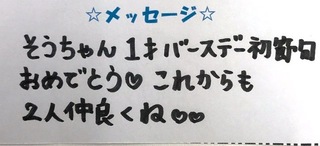 ☆メッセージ☆
そうちゃん1才バースデー初節句
おめでとう♡これからも
2人仲良くね♡♡